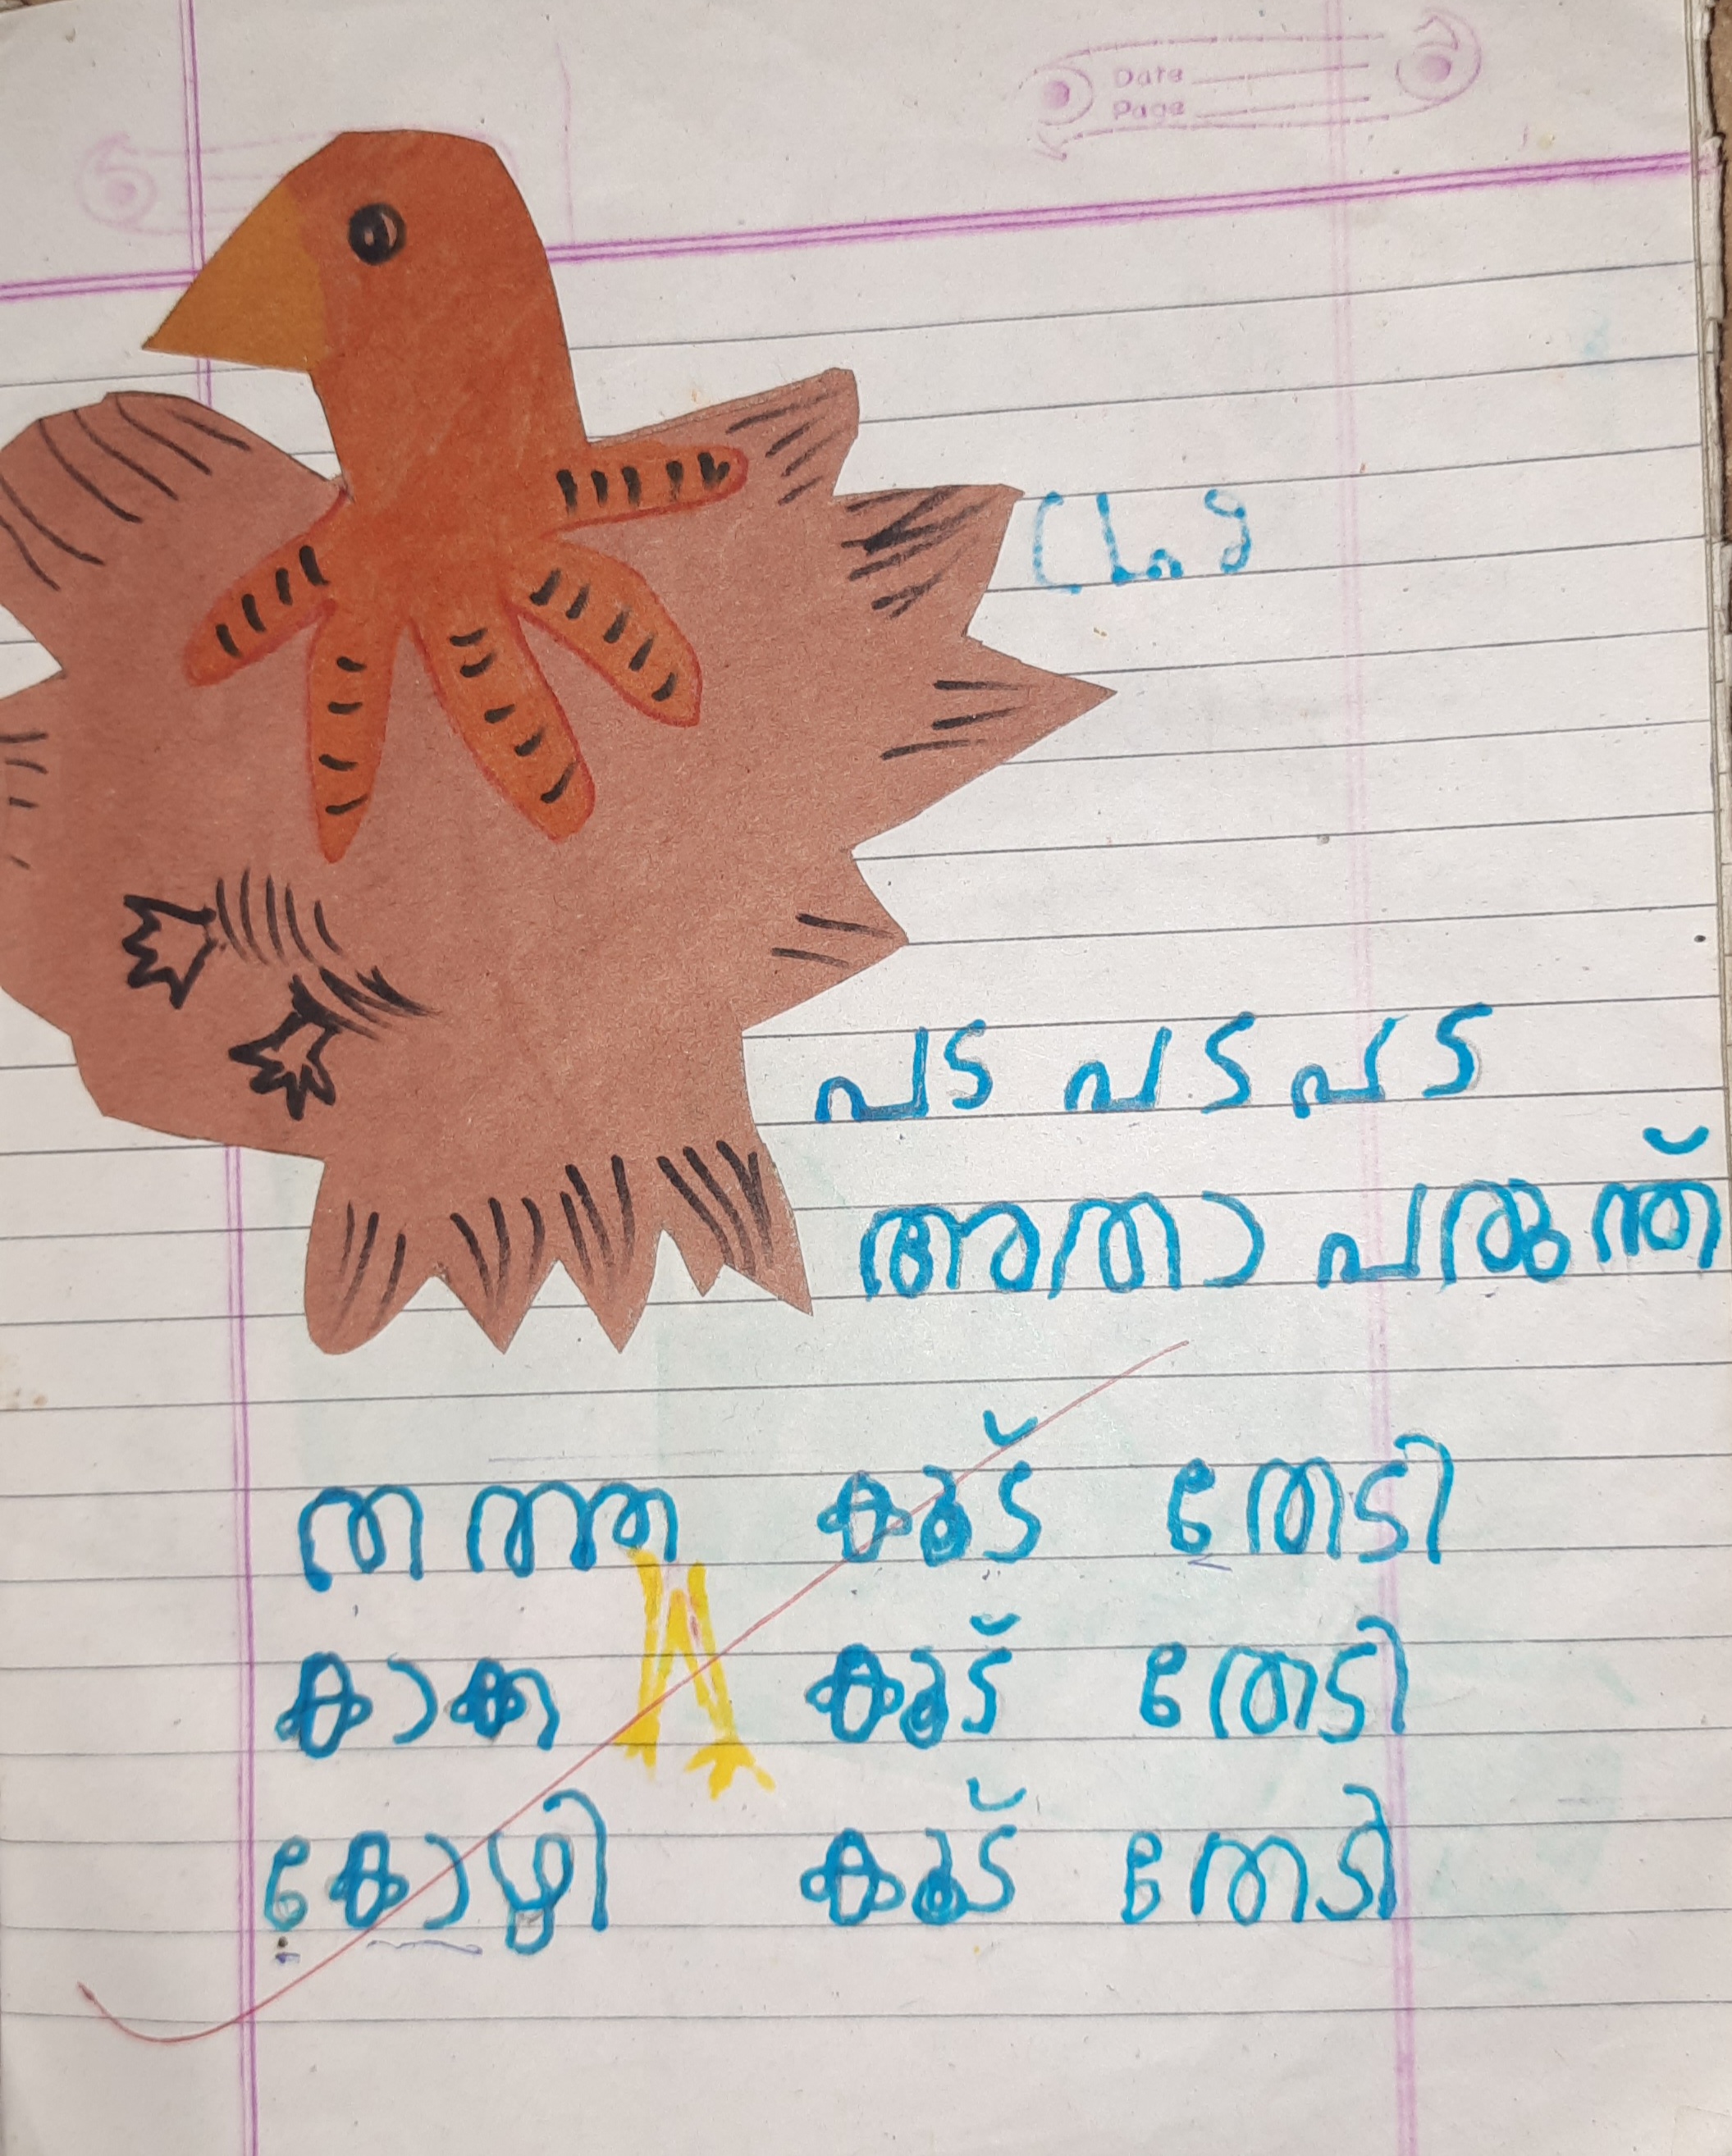 Date
Page
പട പട പട
അതാ പരുന്ത്
തത്ത കൂട് തേടി
കാക്ക കൂട് തേടി
കോഴി കൂട് തേടി